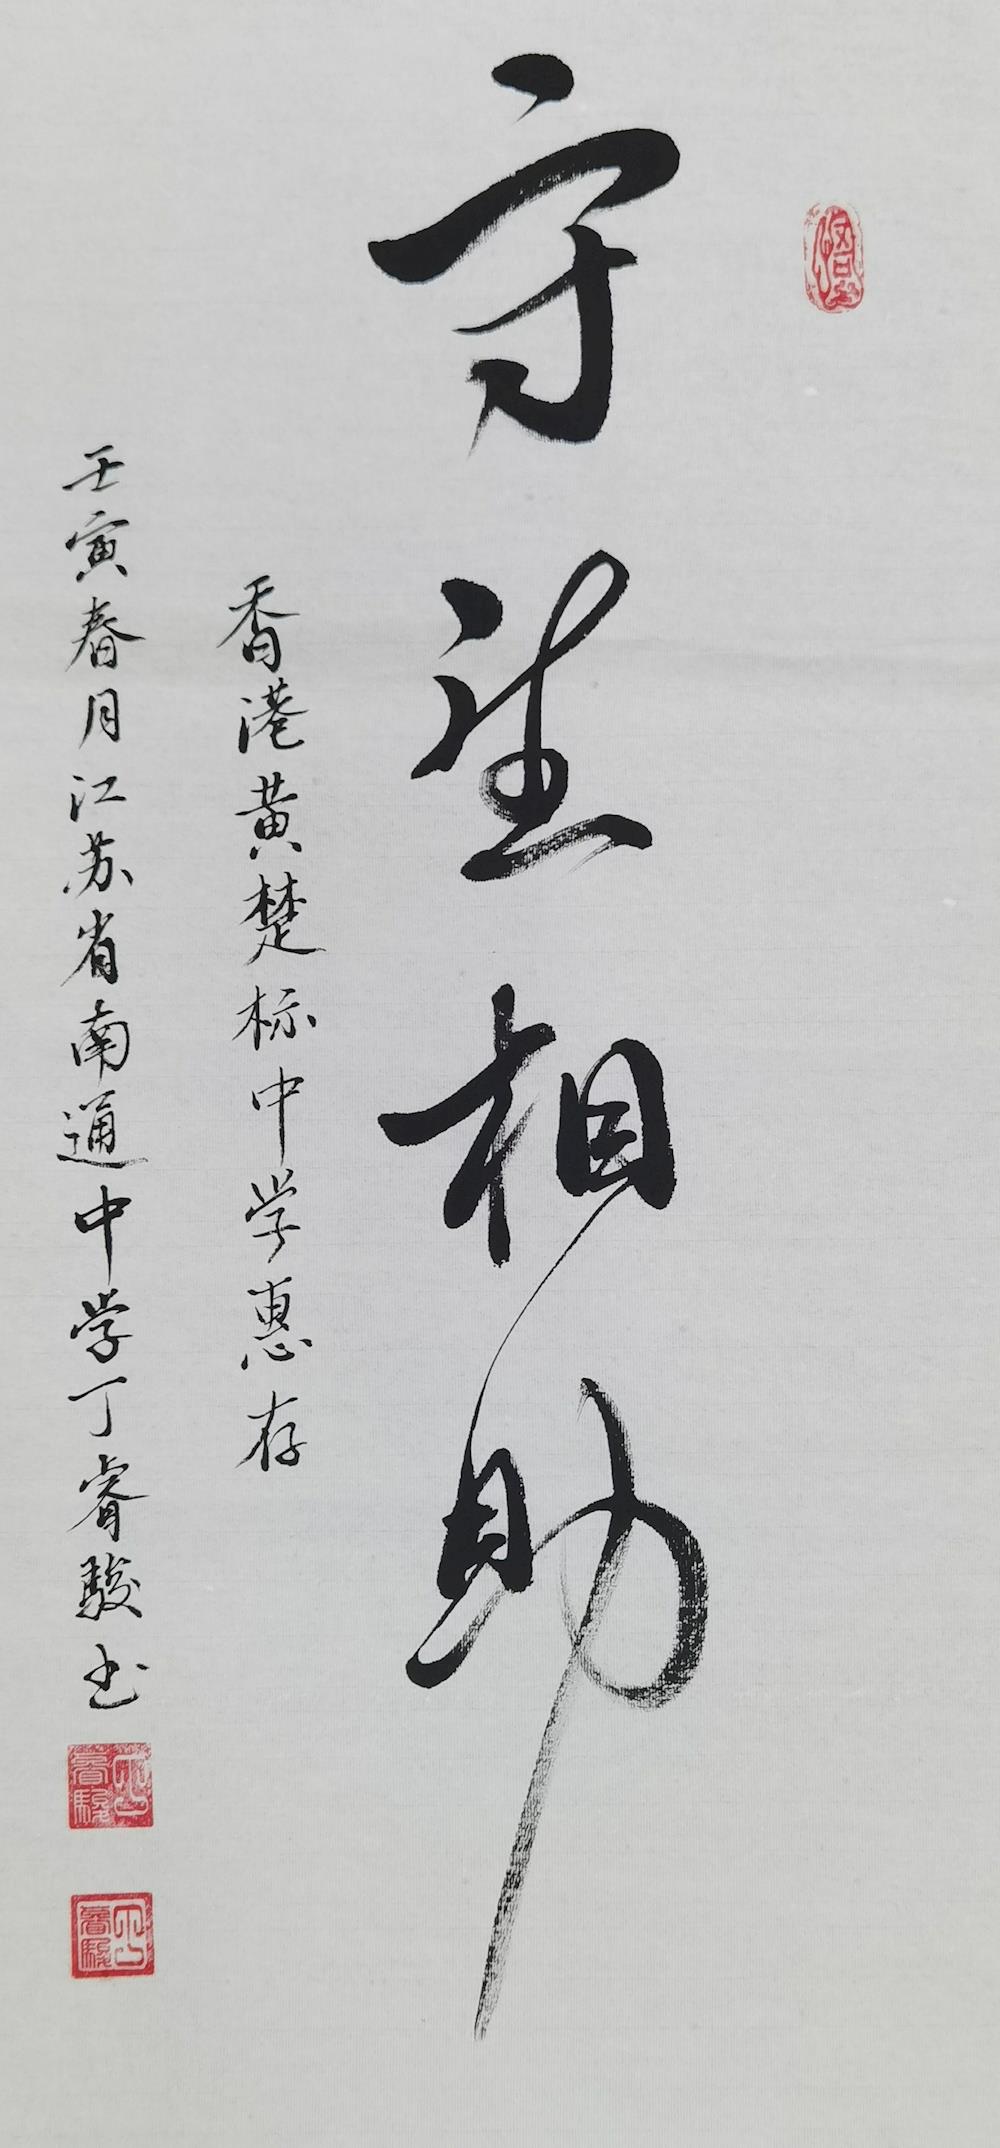 守望相助
香港黄楚标中学惠存
壬寅春月江苏省南通中学丁睿駿书